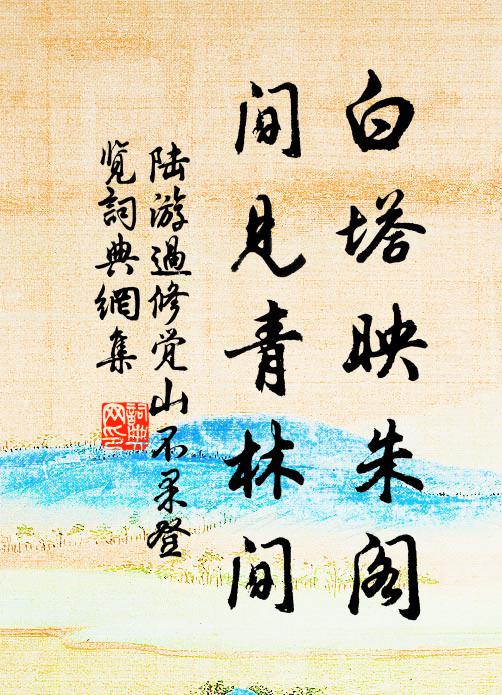 白塔映朱阁
间见青林间
陆游過修觉山不果登
览詞典網集
詞典网印